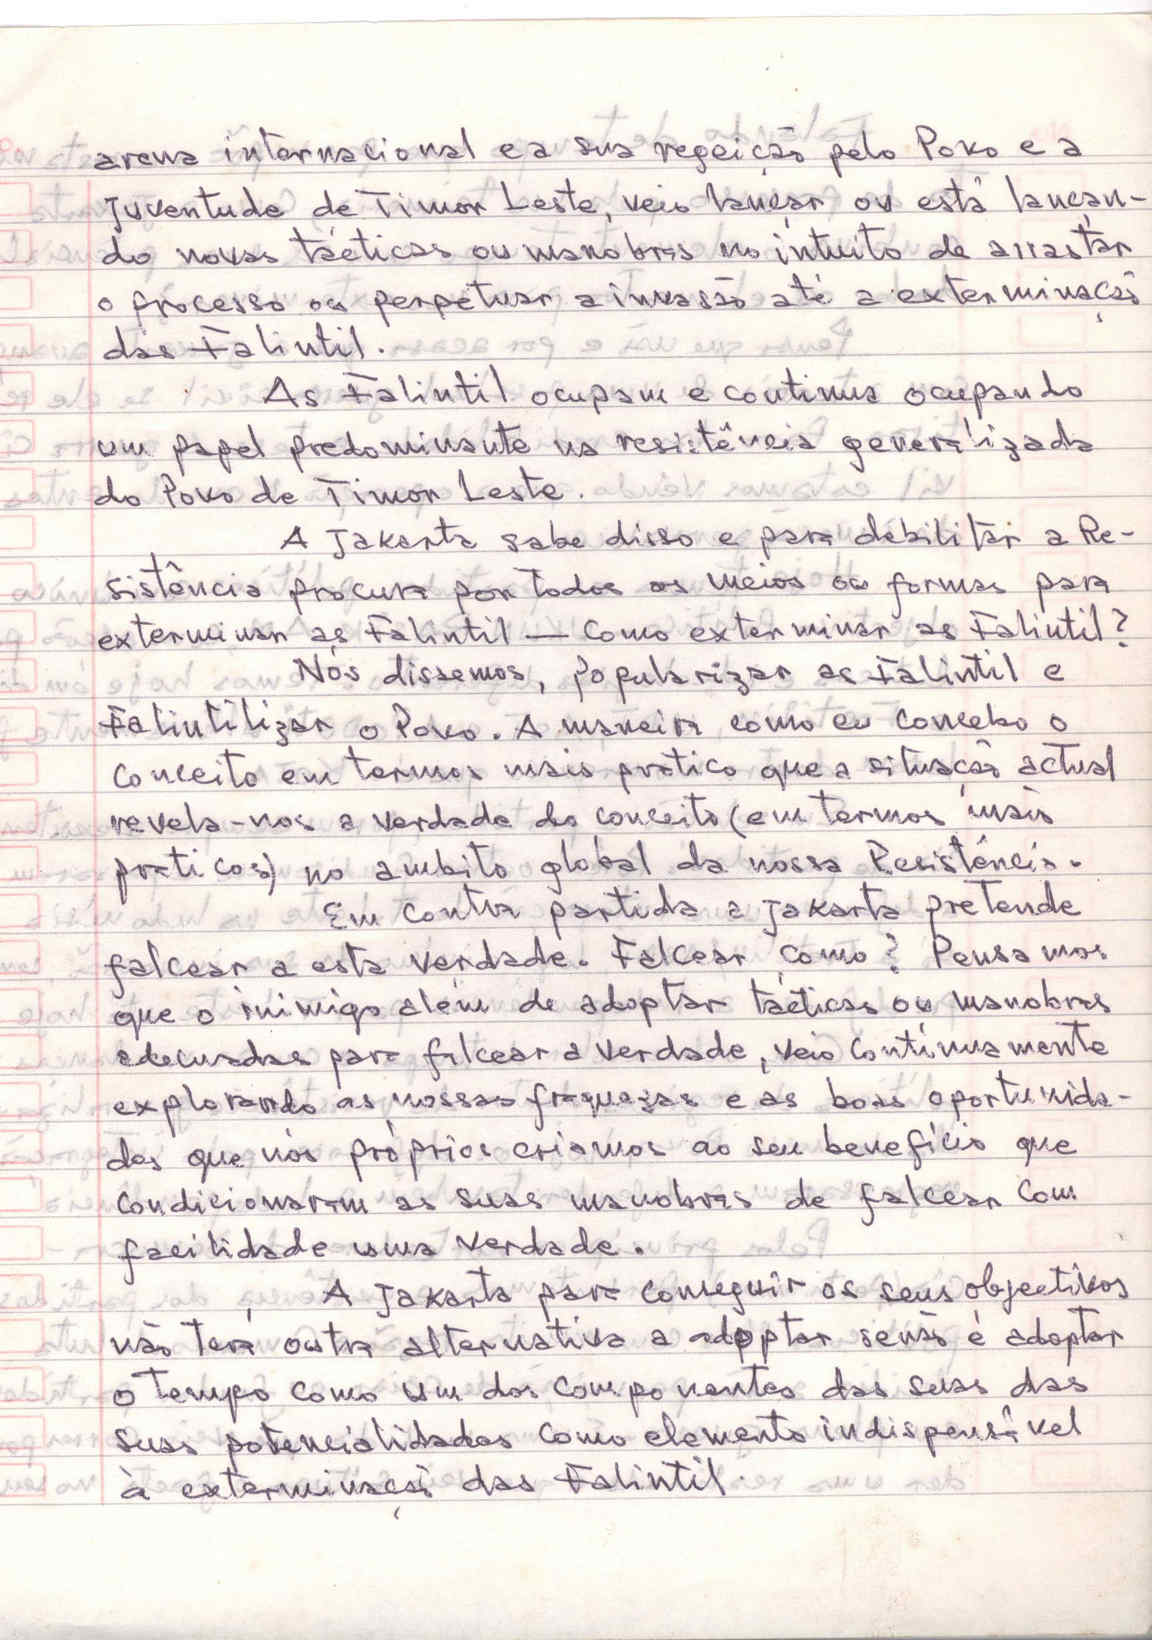 arena internacional e a sua regeição pelo Povo e a
Juventude de Timor Leste, veio lançar ou está lançan-
do novas tácticas ou manobras no intuito de arrastar
o processo ou perpetuar a invasão até a exterminação
das Falintil.
As Falintil ocupam e continua ocupando
um papel predominante na resistência generalizada
do Povo de Timor Leste.
A Jakarta sabe disso e para debilitar a Re-
sistência procura por todos os meios ou formas para
exterminar as Falintil — Como exterminar as Falintil?
Nós dissemos, Popularizar as Falintil e
Falintilizar o Povo. A maneira como eu concebo o
Conceito em termos mais prático que a situação actual
revela-nos a verdade do conceito (em termos mais
praticos) no ambito global da nossa Resistência.
Em contra partida a Jakarta pretende
falcear a esta verdade. Falcear como? Pensamos
que o inimigo além de adoptar tácticas ou manobras
adecuadas para falcear a verdade, veio contínuamente
explorando as nossas fraquezas e as boas oportunida-
des que nós próprios criamos ao seu benefício que
condicionaram as suas manobras de falcear com
facilidade uma verdade.
A Jakarta para conseguir os seus objectivos
não terá outra alternativa a adoptar senão é adoptar
o Tempo como um dos componentes das suas das
suas potencialidades como elemento indispensável
à exterminação das Falintil.